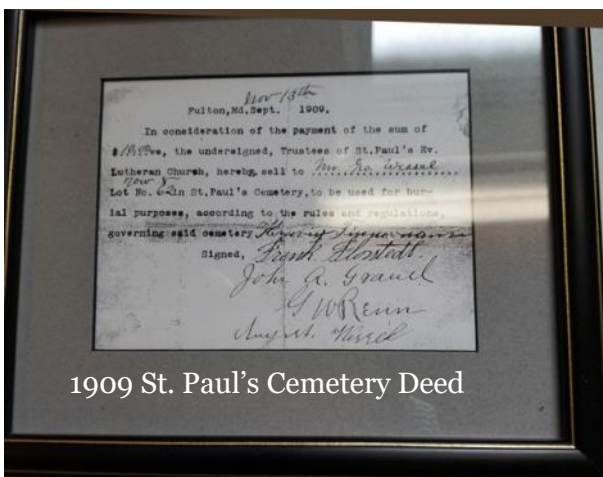 Nov 13th
Fulton, Md. Sept. 1909.
In consideration of the payment of the sum of
we, the undersigned, Trustees of St.Paul's Ev.
Lutheran Church, hereby sell to Mr Jno. Wessel
Lot No. 63 in St.Paul's Cemetery, to be used for bur-
ial purposes, according to the rules and regulations,
governing said cemetery
Signed, Frank
John A. Grauel
G W Renn
August
1909 St. Paul's Cemetery Deed